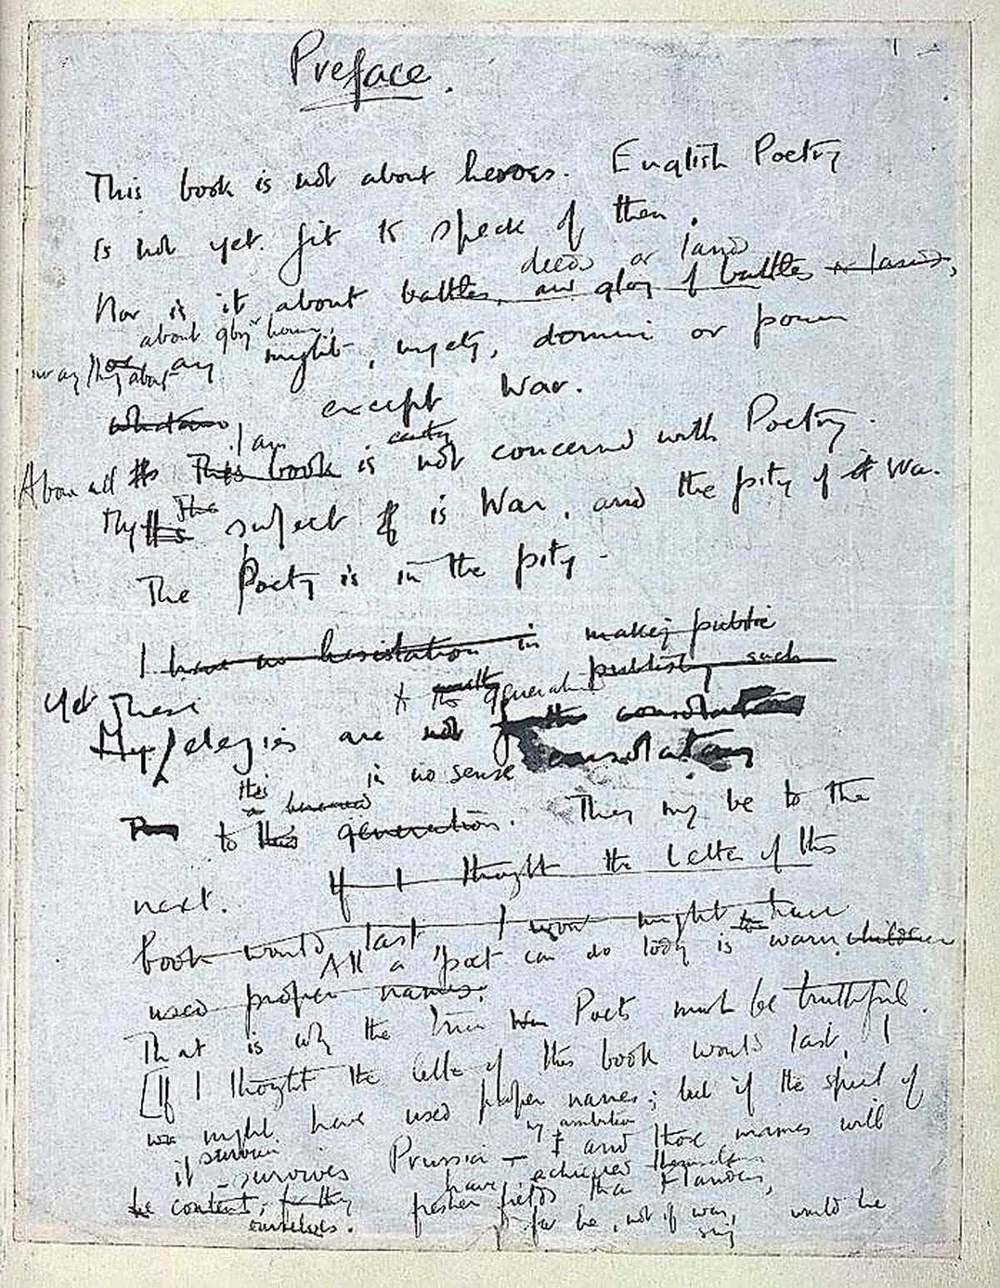 Preface.
This book is not about heroes. English Poetry
is not yet fit to speak of them.
deeds or lands
Nor is it about battles, and glory of battles or lands,
about glory, honour,
nor anything about any might, majesty, dominion or power
whatever except War.
I am
Above all This book is not concerned with Poetry.
The
My subject is War, and the pity of War.
The Poetry is in the pity.
I have no hesitation in making public
publishing such
Yet These to generation
My elegies are not consolation
in no sense consolatory
this a bereaved
to this generation. They may be to the
next. If I thought the letter of this
book would last, I might have
All a poet can do today is warn children
used proper names.
That is why the true War Poets must be truthful.
[If I thought the letter of this book would last, I
might have used proper names; but if the spirit of
it survives
survives Prussia – my ambition and those names will
have achieved themselves
be content; fresher fields than Flanders,
ourselves. far be, not of war,
would be